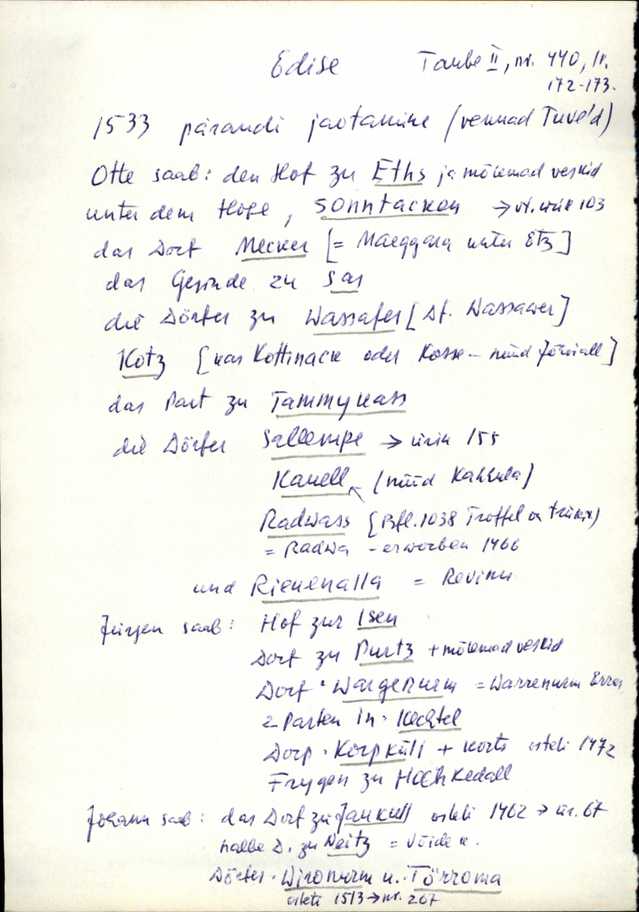 Edise Taube II, nr. 440, lk.
172-173.
1533 pärandi jaotamine (vennad Tuve'd)
Otte saab: den Hof zu Eths ja mõlemad veskid
unter dem Hofe, Sonntacken → vt. ürik 103
das Dorf Mecker [= Maeggara unter Etz]
das Gesinde zu Sas
die Dörfer zu Wassafer [Df. Wassawer]
Kotz [kas Kottinack oder Kosse - nüüd]
das Part zu Tammykass
die Dörfer Sallempe → ürik 155
Kauell (nüüd Kahhula)
Radwass (Bfl. 1038 Troffel on)
= Radwa - erworben 1466
und Rienenalla = Revinu
Jürgen saab: Hof zur Isen
Dorf zu Purtz + mõlemad veskid
Dorf " Wargenurm = Warrenurm Erras
2 Parten in " Kechtel
Dorp " Körpküll + korts osteti 1472
Frygen zu Hochkedall
Johann saab: das Dorf zu Jankull osteti 1462 → nr. 67
halbe D. zu Neitz = Võide k.
Dörfer " Wironurm u. Törroma
osteti 1513 → nr. 267